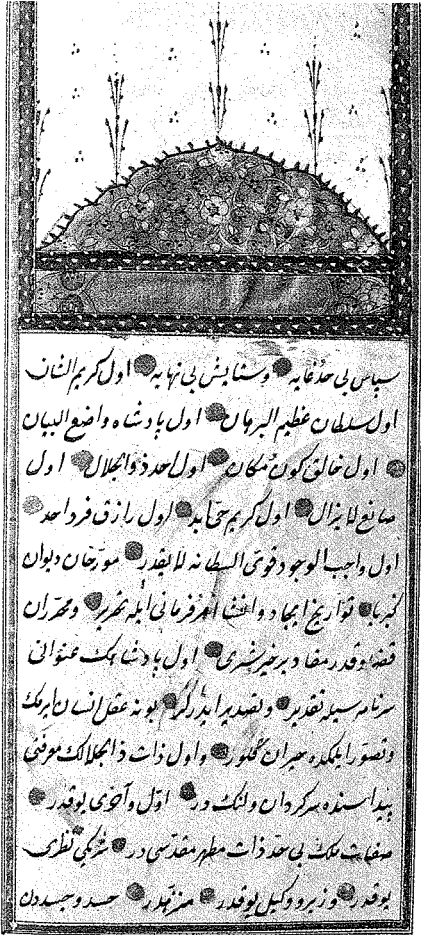 سپاس بی حدّ و غایه و ستایش بی نهایه اول کریم الشان
اول سلطان عظیم البرهان اول پادشاه واضع البیان
اول خالق کون و مکان اول احد ذو الجلال اول
صانع لایزال اول کریم حیّ ابد اول رازق فرد احد
اول واجب الوجود قوی السلطانه لایقدر مورّخان دیوان
کبریا تواریخ ایجاد و انشا امر فرمانی ایله تحریر و محرّران
قضا و قدر مفاد بر خیر شری اول پادشاهك عنوانی
سرنامه سیله تقدیر و تصدیر ایدرلر بونه عقل انسان ادراك
و تصوّر ایلمکده حیران کلور و اول ذات ذو الجلالك معرفتی
پیداسنده سرکردان و لنك در اوّل و آخری یوقدر
صفات ملك بی حد ذات مطهر مقدّسی در شریکی نظیری
یوقدر و زیر و وکیل یوقدر منزهدر حسد و جسددن